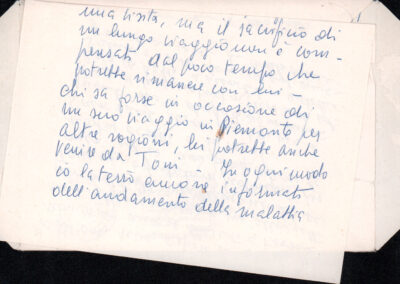 una visita, ma il sacrificio di
un lungo viaggio non è com-
pensato dal poco tempo che
potrebbe rimanere con lui -
chi sa forse in occasione di
un suo viaggio in Piemonte per
altre ragioni, lei potrebbe anche
venire da Toni - In ogni modo
io la terrò ancora informata
dell'andamento della malattia